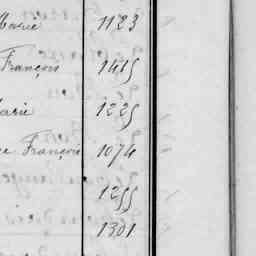 Marie 1123
François 1415
Marie 1225
François 1074
1255
1301